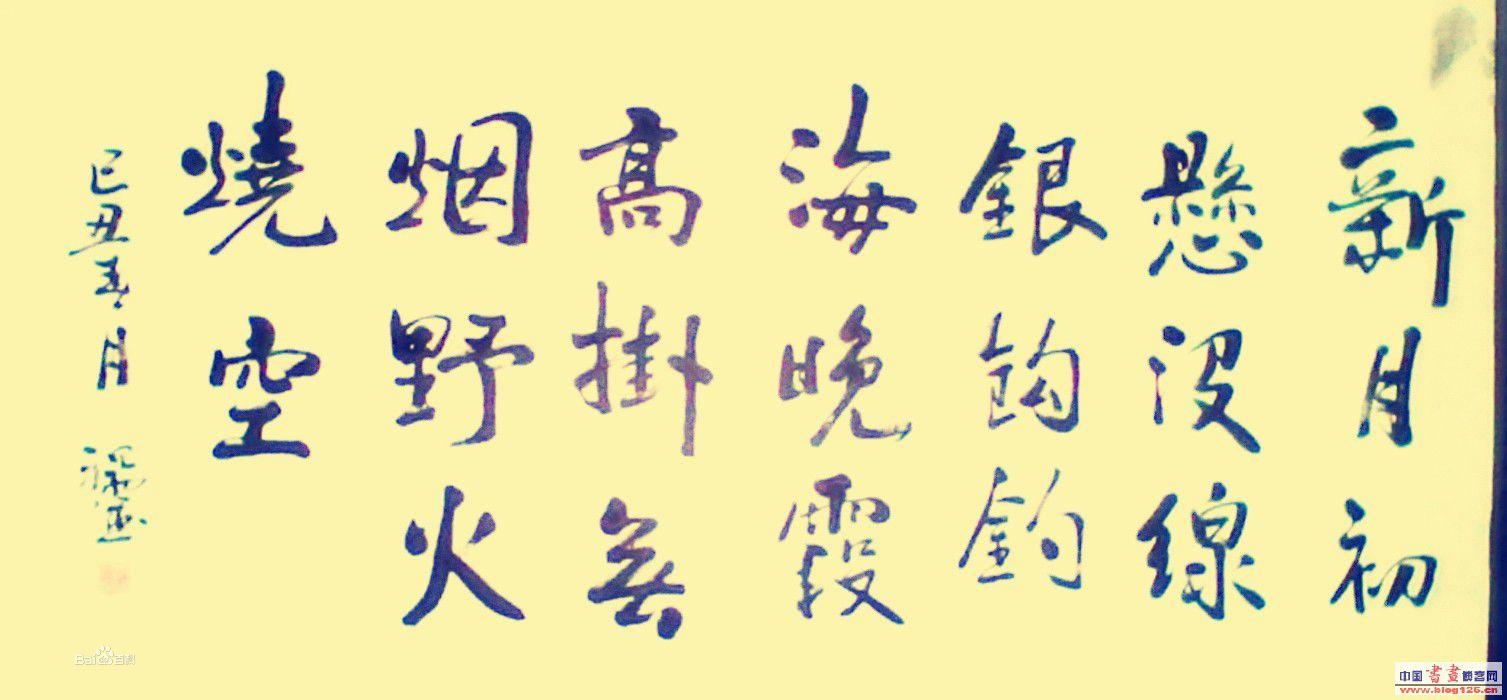 新月初
懸沒線
銀鈎釣
海晚霞
高掛無
烟野火
燒空
己丑春月
Bai百科
中国書畫博客网
www.blog126.cn